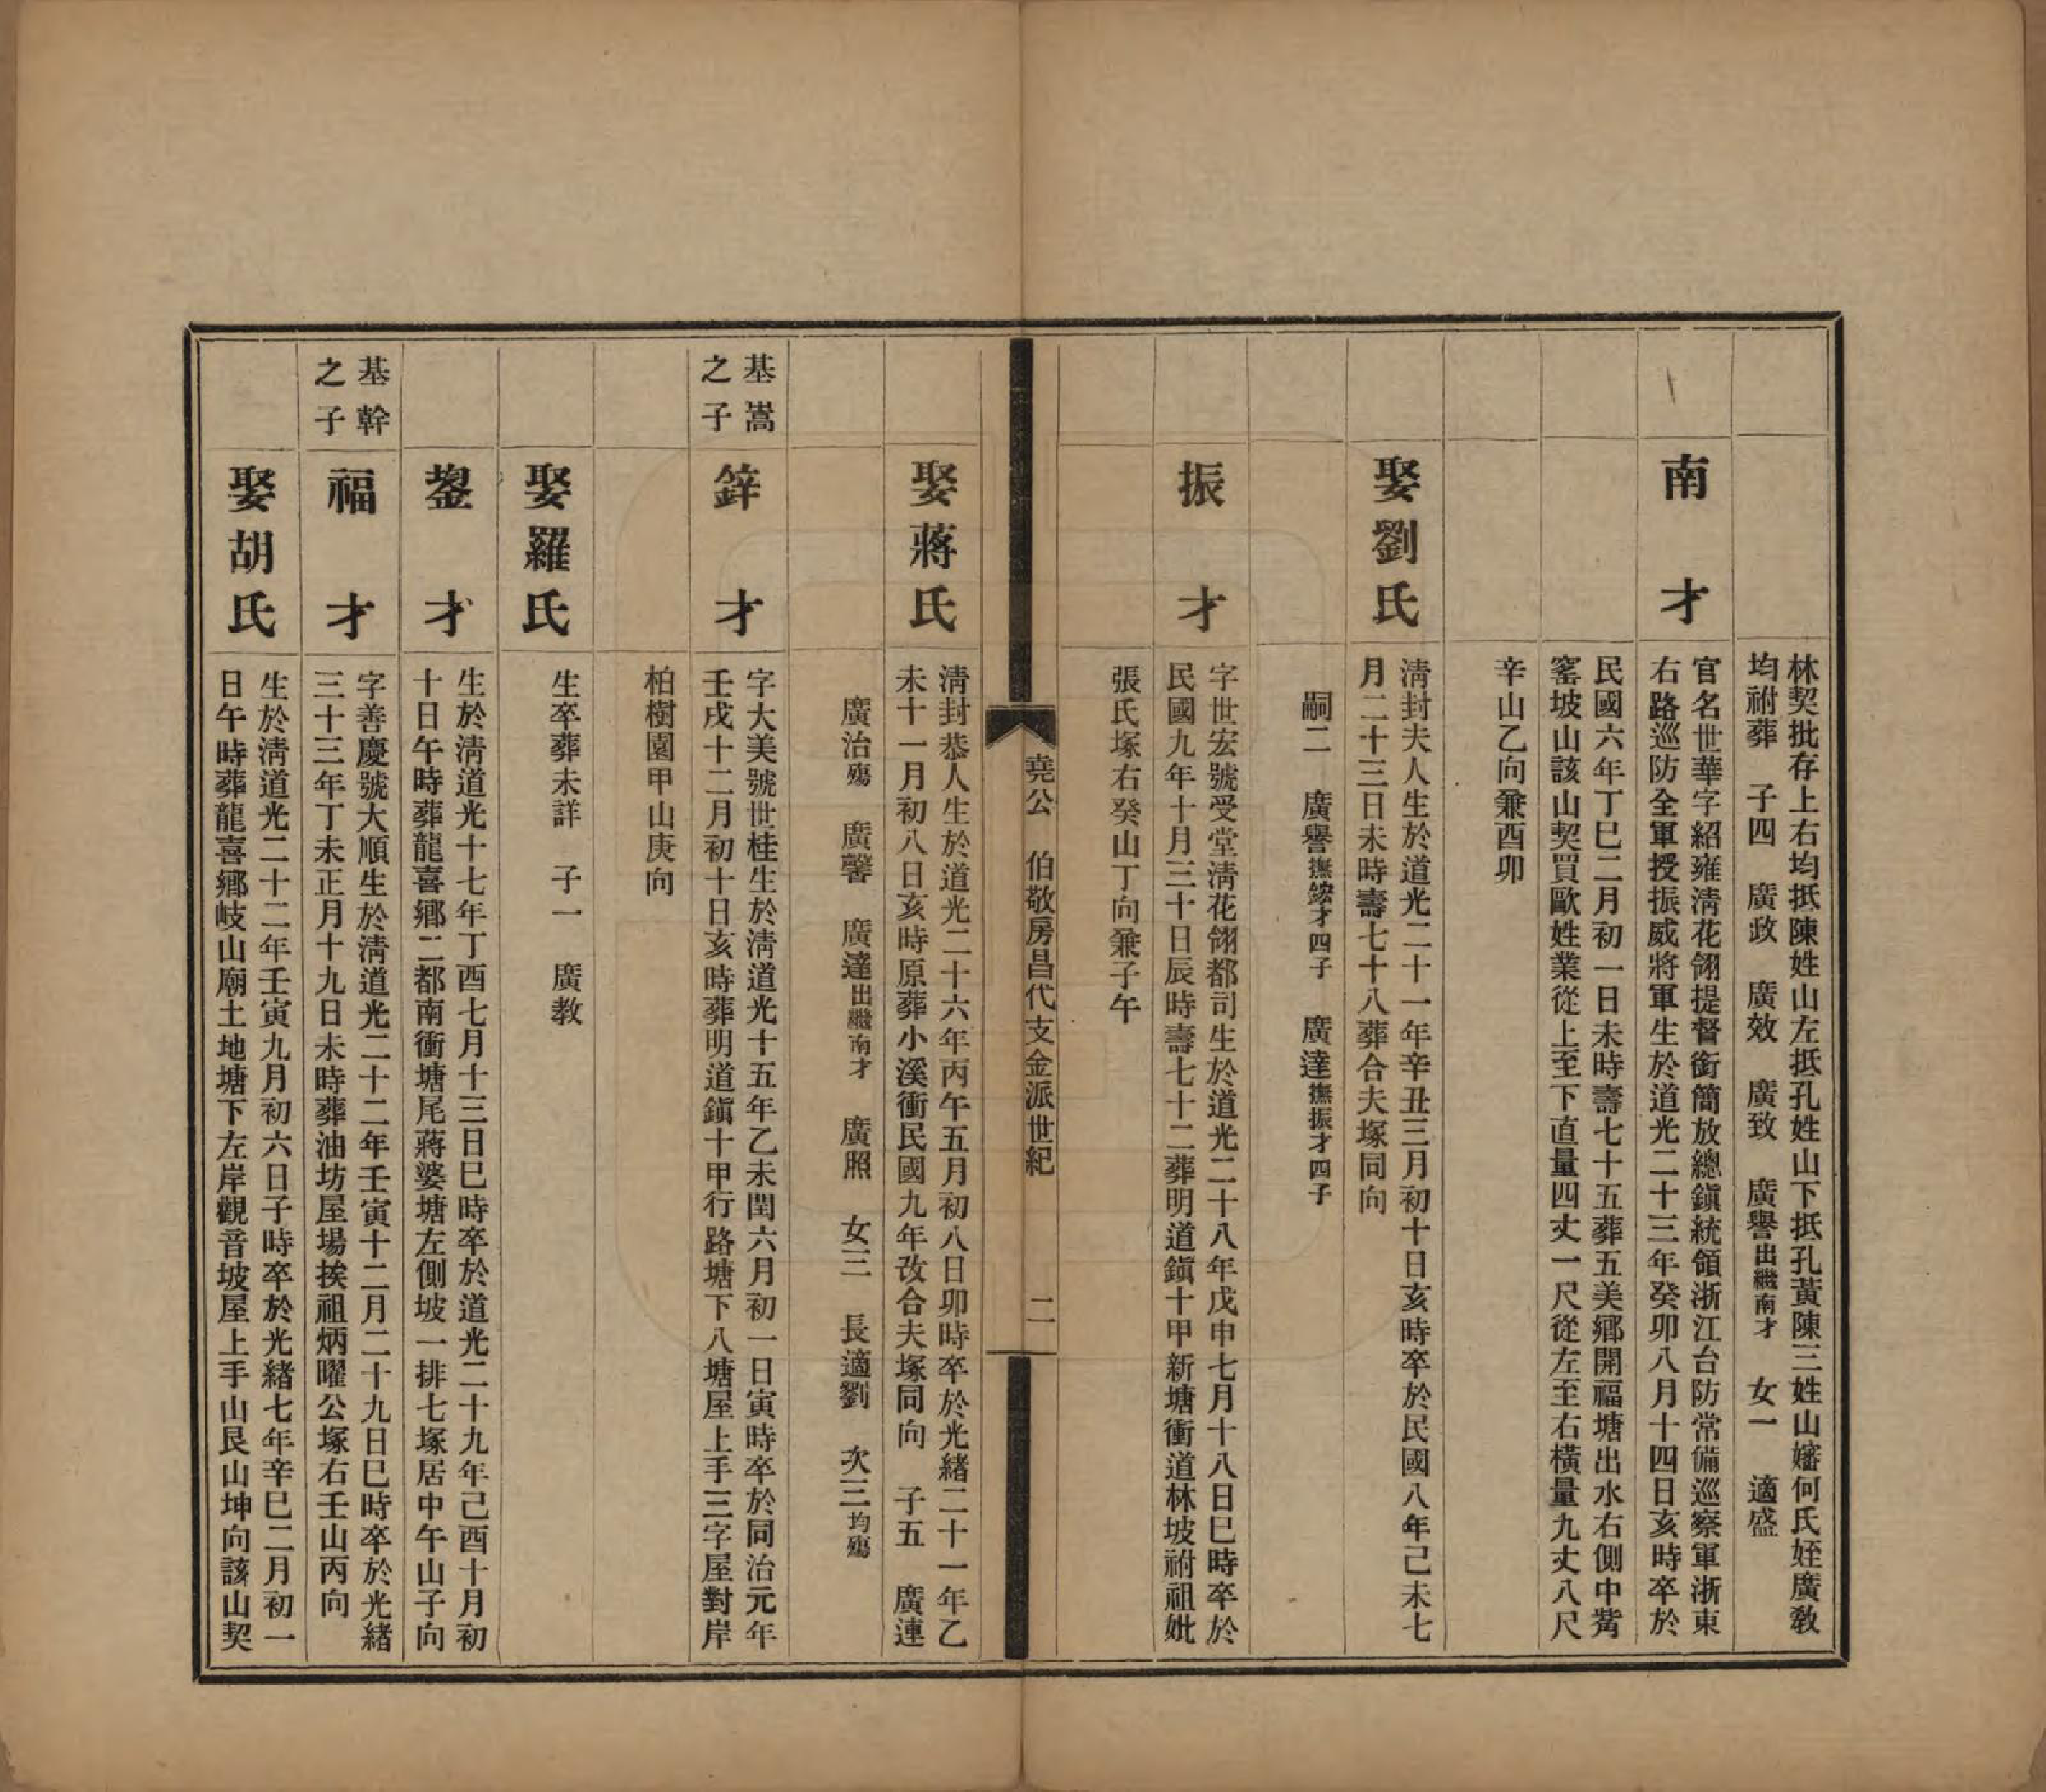 林契批存上右均抵陳姓山左抵孔姓山下抵孔黃陳三姓山嬸何氏姪廣敎
均祔葬　子四　廣政　廣效　廣致　廣譽出繼南才　女一　適盛
南才
官名世華字紹雍淸花翎提督銜簡放總鎭統領浙江台防常備巡察軍浙東
右路巡防全軍授振威將軍生於道光二十三年癸卯八月十四日亥時卒於
民國六年丁巳二月初一日未時壽七十五葬五美鄕開福塘出水右側中觜
窰坡山該山契買歐姓業從上至下直量四丈一尺從左至右橫量九丈八尺
辛山乙向兼酉卯
娶劉氏
淸封夫人生於道光二十一年辛丑三月初十日亥時卒於民國八年己未七
月二十三日未時壽七十八葬合夫塚同向
嗣二　廣譽撫鋐才四子　廣達撫振才四子
振才
字世宏號受堂淸花翎都司生於道光二十八年戊申七月十八日巳時卒於
民國九年十月三十日辰時壽七十二葬明道鎭十甲新塘衝道林坡祔祖妣
張氏塚右癸山丁向兼子午
堯公　伯敬房昌代支金派世紀　二
娶蔣氏
淸封恭人生於道光二十六年丙午五月初八日卯時卒於光緖二十一年乙
未十一月初八日亥時原葬小溪衝民國九年改合夫塚同向　子五　廣連
廣治殤　廣馨　廣達出繼南才　廣照　女三　長適劉　次三均殤
基嵩之子
鋅才
字大美號世桂生於淸道光十五年乙未閏六月初一日寅時卒於同治元年
壬戌十二月初十日亥時葬明道鎭十甲行路塘下八塘屋上手三字屋對岸
柏樹園甲山庚向
娶羅氏
生卒葬未詳　子一　廣敎
鋆才
生於淸道光十七年丁酉七月十三日巳時卒於道光二十九年己酉十月初
十日午時葬龍喜鄕二都南衝塘尾蔣婆塘左側坡一排七塚居中午山子向
基幹之子
福才
字善慶號大順生於淸道光二十二年壬寅十二月二十九日巳時卒於光緖
三十三年丁未正月十九日未時葬油坊屋場挨祖炳曜公塚右壬山丙向
娶胡氏
生於淸道光二十二年壬寅九月初六日子時卒於光緖七年辛巳二月初一
日午時葬龍喜鄕岐山廟土地塘下左岸觀音坡屋上手山艮山坤向該山契